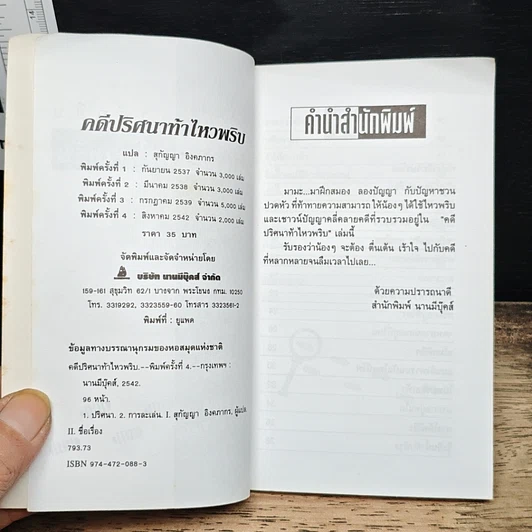 คดีปริศนาท้าไหวพริบ
แปล : สุกัญญา อิงคภากร
พิมพ์ครั้งที่ 1 : กันยายน 2537 จำนวน 3,000 เล่ม
พิมพ์ครั้งที่ 2 : มีนาคม 2538 จำนวน 3,000 เล่ม
พิมพ์ครั้งที่ 3 : กรกฎาคม 2539 จำนวน 5,000 เล่ม
พิมพ์ครั้งที่ 4 : สิงหาคม 2542 จำนวน 2,000 เล่ม
ราคา 35 บาท
จัดพิมพ์และจัดจำหน่ายโดย
บริษัท นานมีบุ๊คส์ จำกัด
159-161 สุขุมวิท 62/1 บางจาก พระโขนง กทม. 10250
โทร. 3319292, 3323559-60 โทรสาร 3323561-2
พิมพ์ที่ : ยูแพด
ข้อมูลทางบรรณานุกรมของหอสมุดแห่งชาติ
คดีปริศนาท้าไหวพริบ.--พิมพ์ครั้งที่ 4.--กรุงเทพฯ :
นานมีบุ๊คส์, 2542.
96 หน้า.
1. ปริศนา. 2. การละเล่น. I. สุกัญญา อิงคภากร, ผู้แปล.
II. ชื่อเรื่อง
793.73
ISBN 974-472-088-3
คำนำสำนักพิมพ์
มามะ...มาฝึกสมอง ลองปัญญา กับปัญหาชวน
ปวดหัว ที่ท้าทายความสามารถ ให้น้องๆ ได้ใช้ไหวพริบ
และเชาวน์ปัญญาคลี่คลายคดีที่รวบรวมอยู่ใน "คดี
ปริศนาท้าไหวพริบ" เล่มนี้
รับรองว่าน้องๆ จะต้อง ตื่นเต้น เร้าใจ ไปกับคดี
ที่หลากหลายจนลืมเวลาไปเลย...
ด้วยความปรารถนาดี
สำนักพิมพ์ นานมีบุ๊คส์